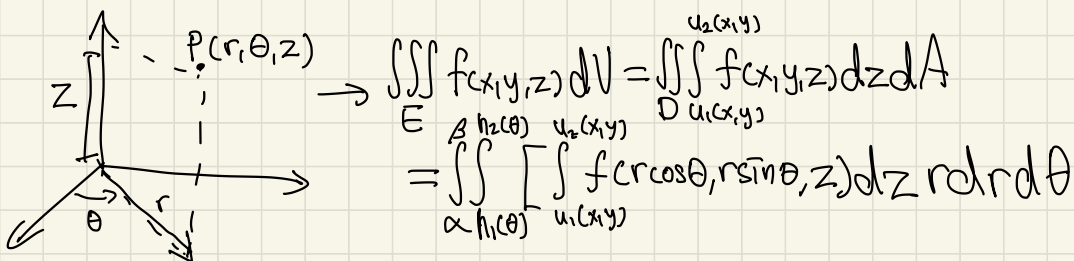 P(r,θ,z)
z
θ
r
→ ∭_E f(x,y,z)dV = ∬_D ∫_{u₁(x,y)}^{u₂(x,y)} f(x,y,z)dzdA
= ∫_α^β ∫_{h₁(θ)}^{h₂(θ)} [ ∫_{u₁(x,y)}^{u₂(x,y)} f(rcosθ,rsinθ,z)dz rdrdθ